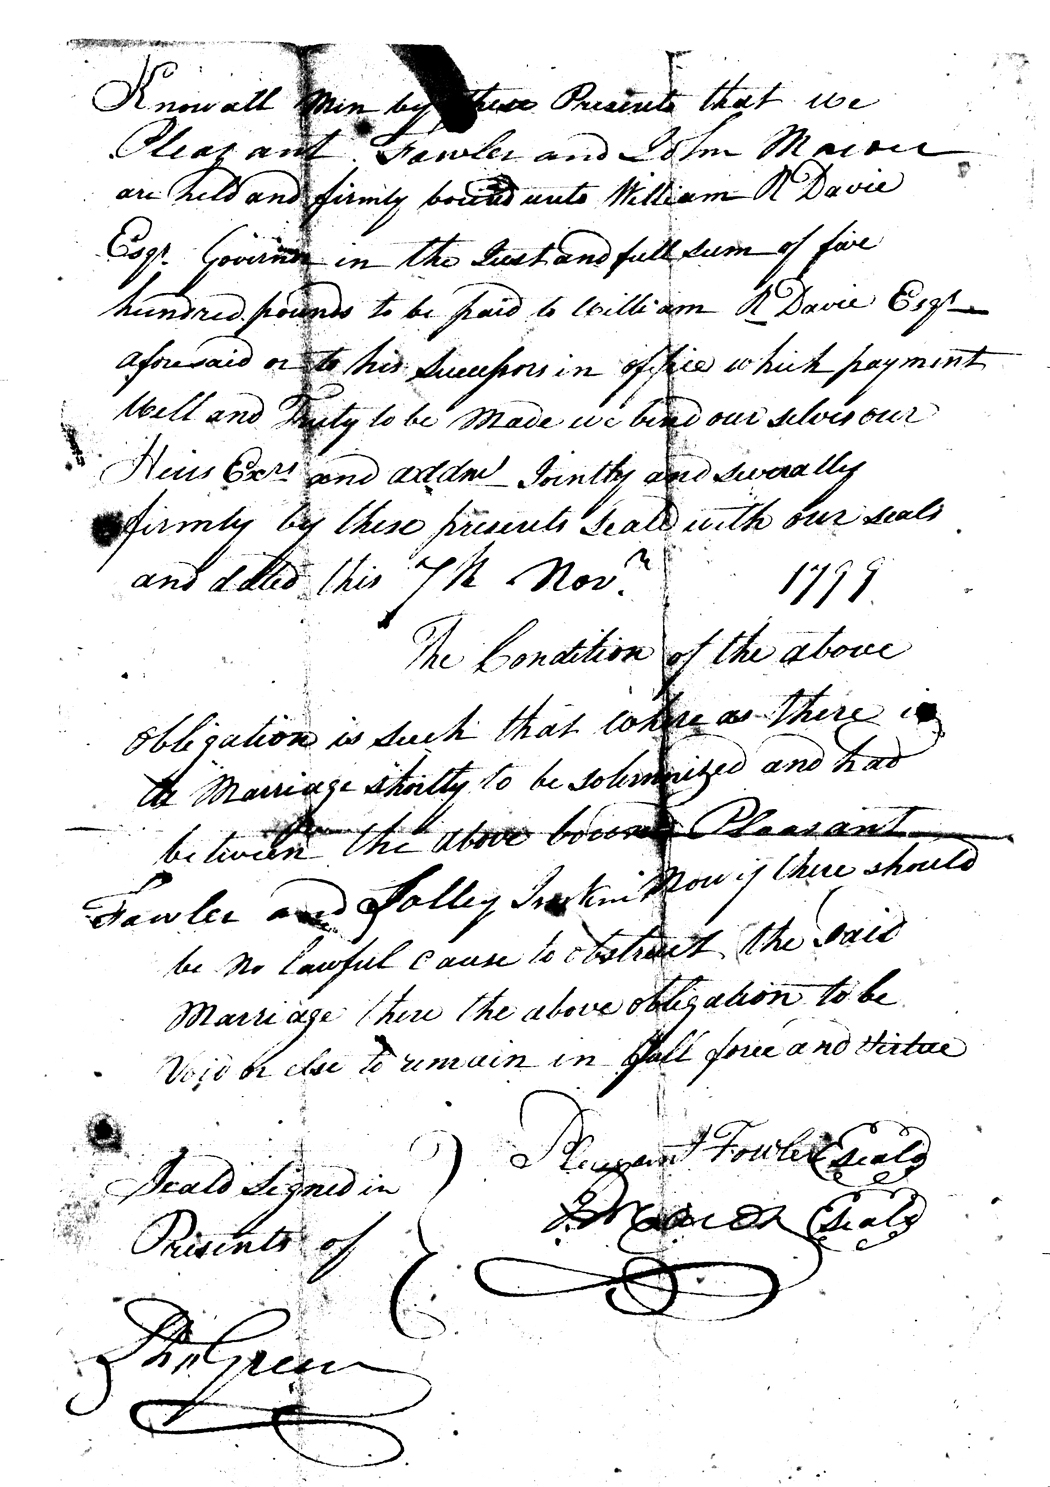 Know all Men by these Presents that we
Pleasant Fowler and John
are held and firmly bound unto William R Davie
Esqr. Governor in the Just and full sum of five
hundred pounds to be paid to William R Davie Esqr
aforesaid or to his Successors in office which payment
Well and Truly to be Made we bind our selves our
Heirs Exrs and addmr Jointly and severally
firmly by these presents seald with our seals
and dated this 7th Novr. 1799
The Condition of the above
obligation is such that where as there is
a Marriage shortly to be solemnized and had
between the above bound Pleasant
Fowler and Salley Now if there should
be No lawful cause to obstruct the said
Marriage there the above obligation to be
Void or else to remain in full force and virtue
Pleasant Fowler (Seal)
(Seal)
Seald Signed in
Presents of
Green